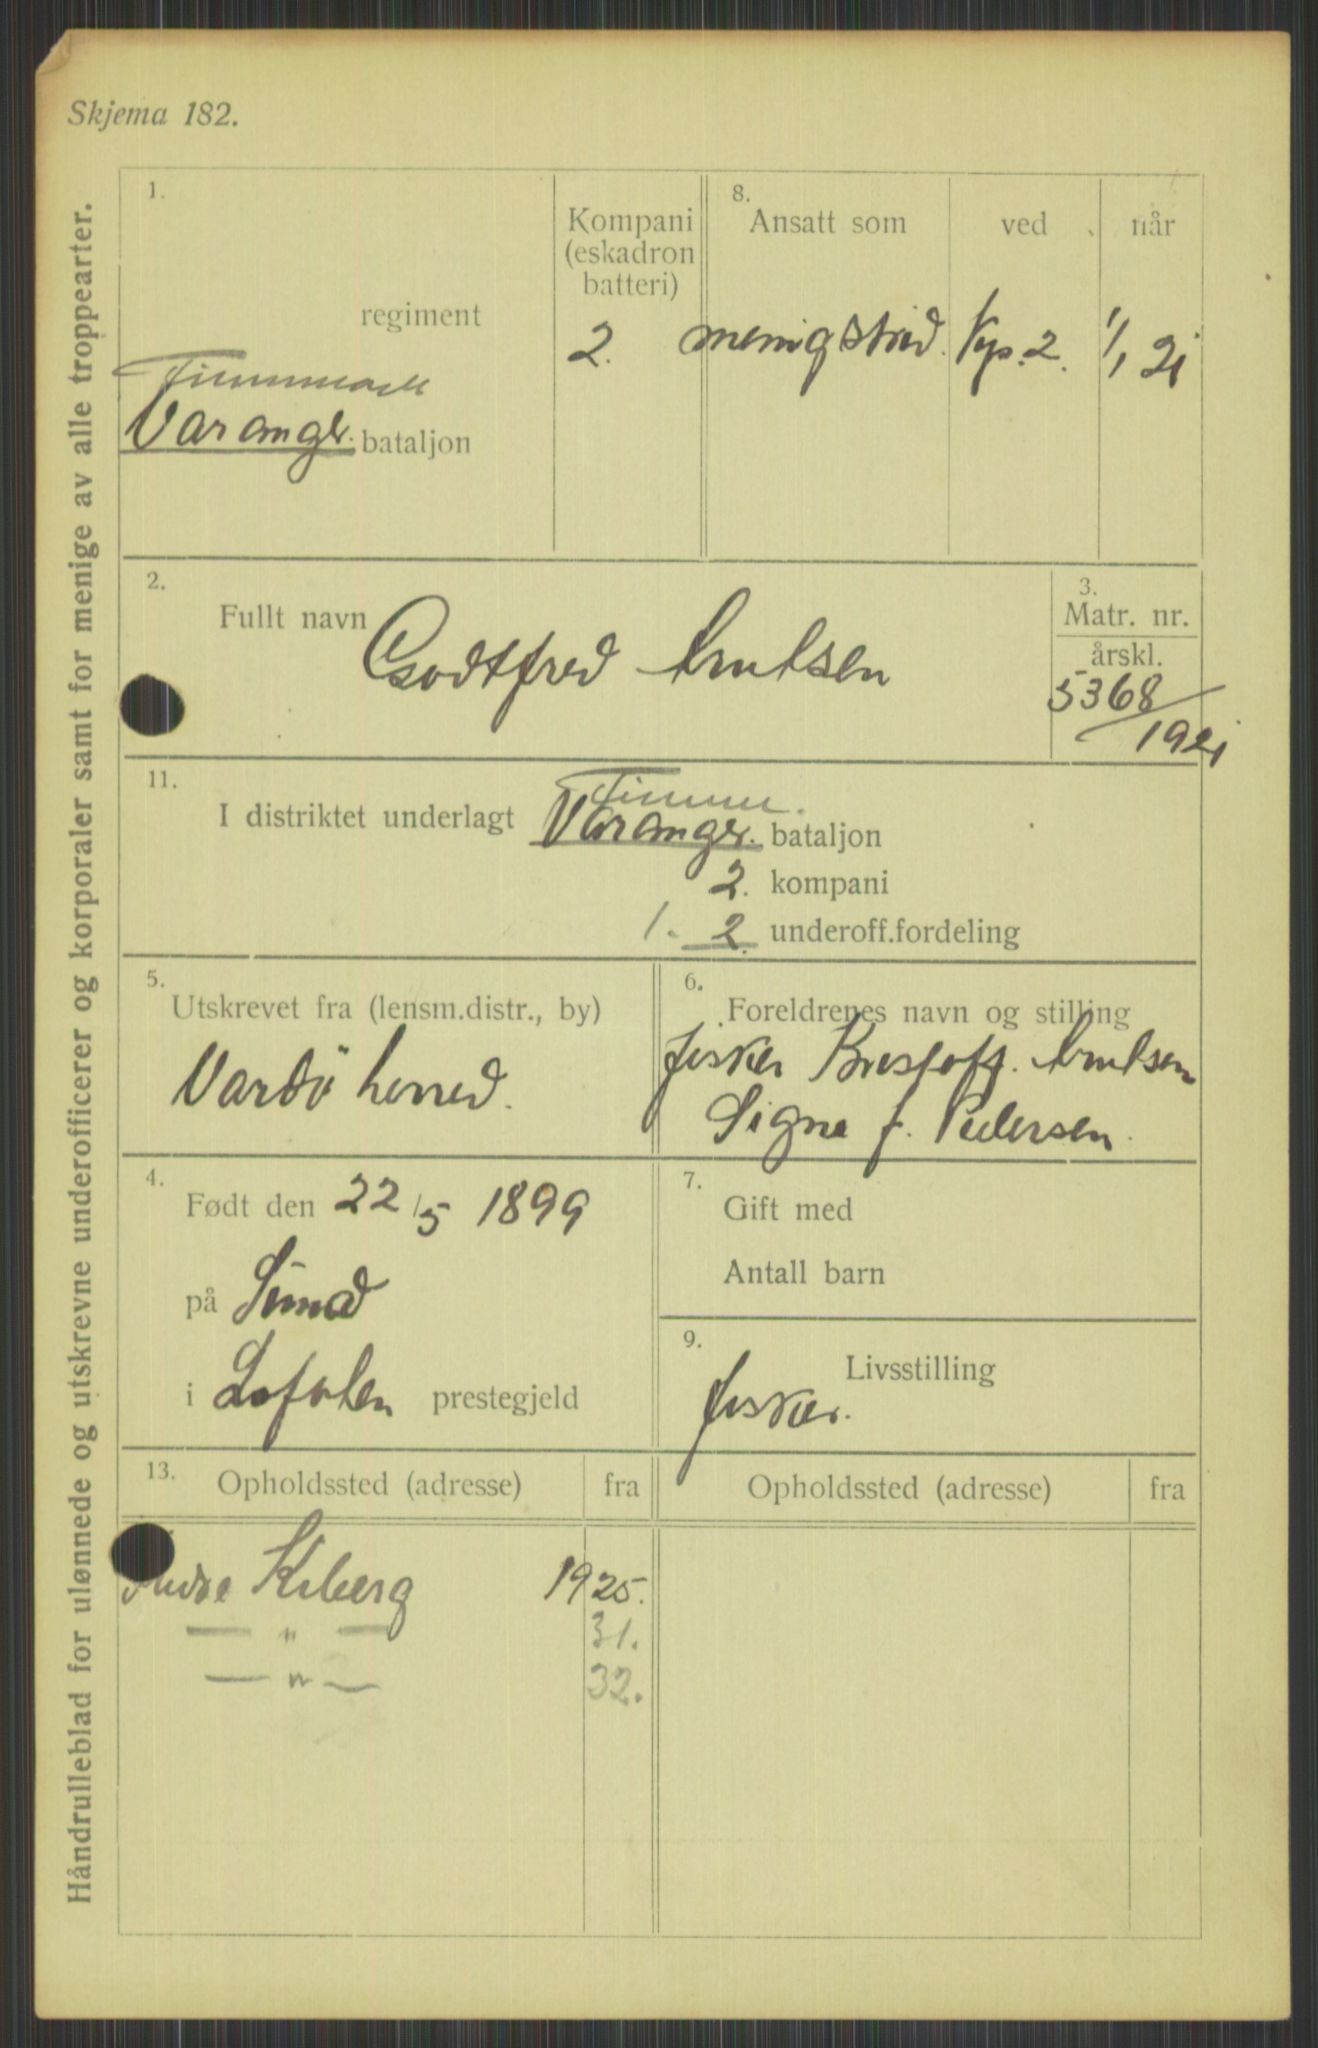 Skjema 182.
Håndrulleblad for ulønnede og utskrevne underofficerer og korporaler samt for menige av alle troppearter.
1.
regiment
Finnmark
Varanger bataljon
Kompani
(eskadron
batteri)
2.
8.
Ansatt som
ved
når
menig strid. Kp. 2. 1/1 21
2.
Fullt navn
Godtfred
3.
Matr. nr.
årskl.
5368/
1921
11.
Finnm.
I distriktet underlagt Varanger. bataljon
2. kompani
1. 2. underoff.fordeling
5.
Utskrevet fra (lensm.distr., by)
Vardö herred.
6.
Foreldrenes navn og stilling
fisker
Signe f. Pedersen.
4.
Født den 22/5 1899
på
i Lofoten prestegjeld
7.
Gift med
Antall barn
9.
Livsstilling
fisker.
13.
Opholdssted (adresse) fra
Opholdssted (adresse) fra
Kiberg 1925.
— " — 31.
— " — 32.